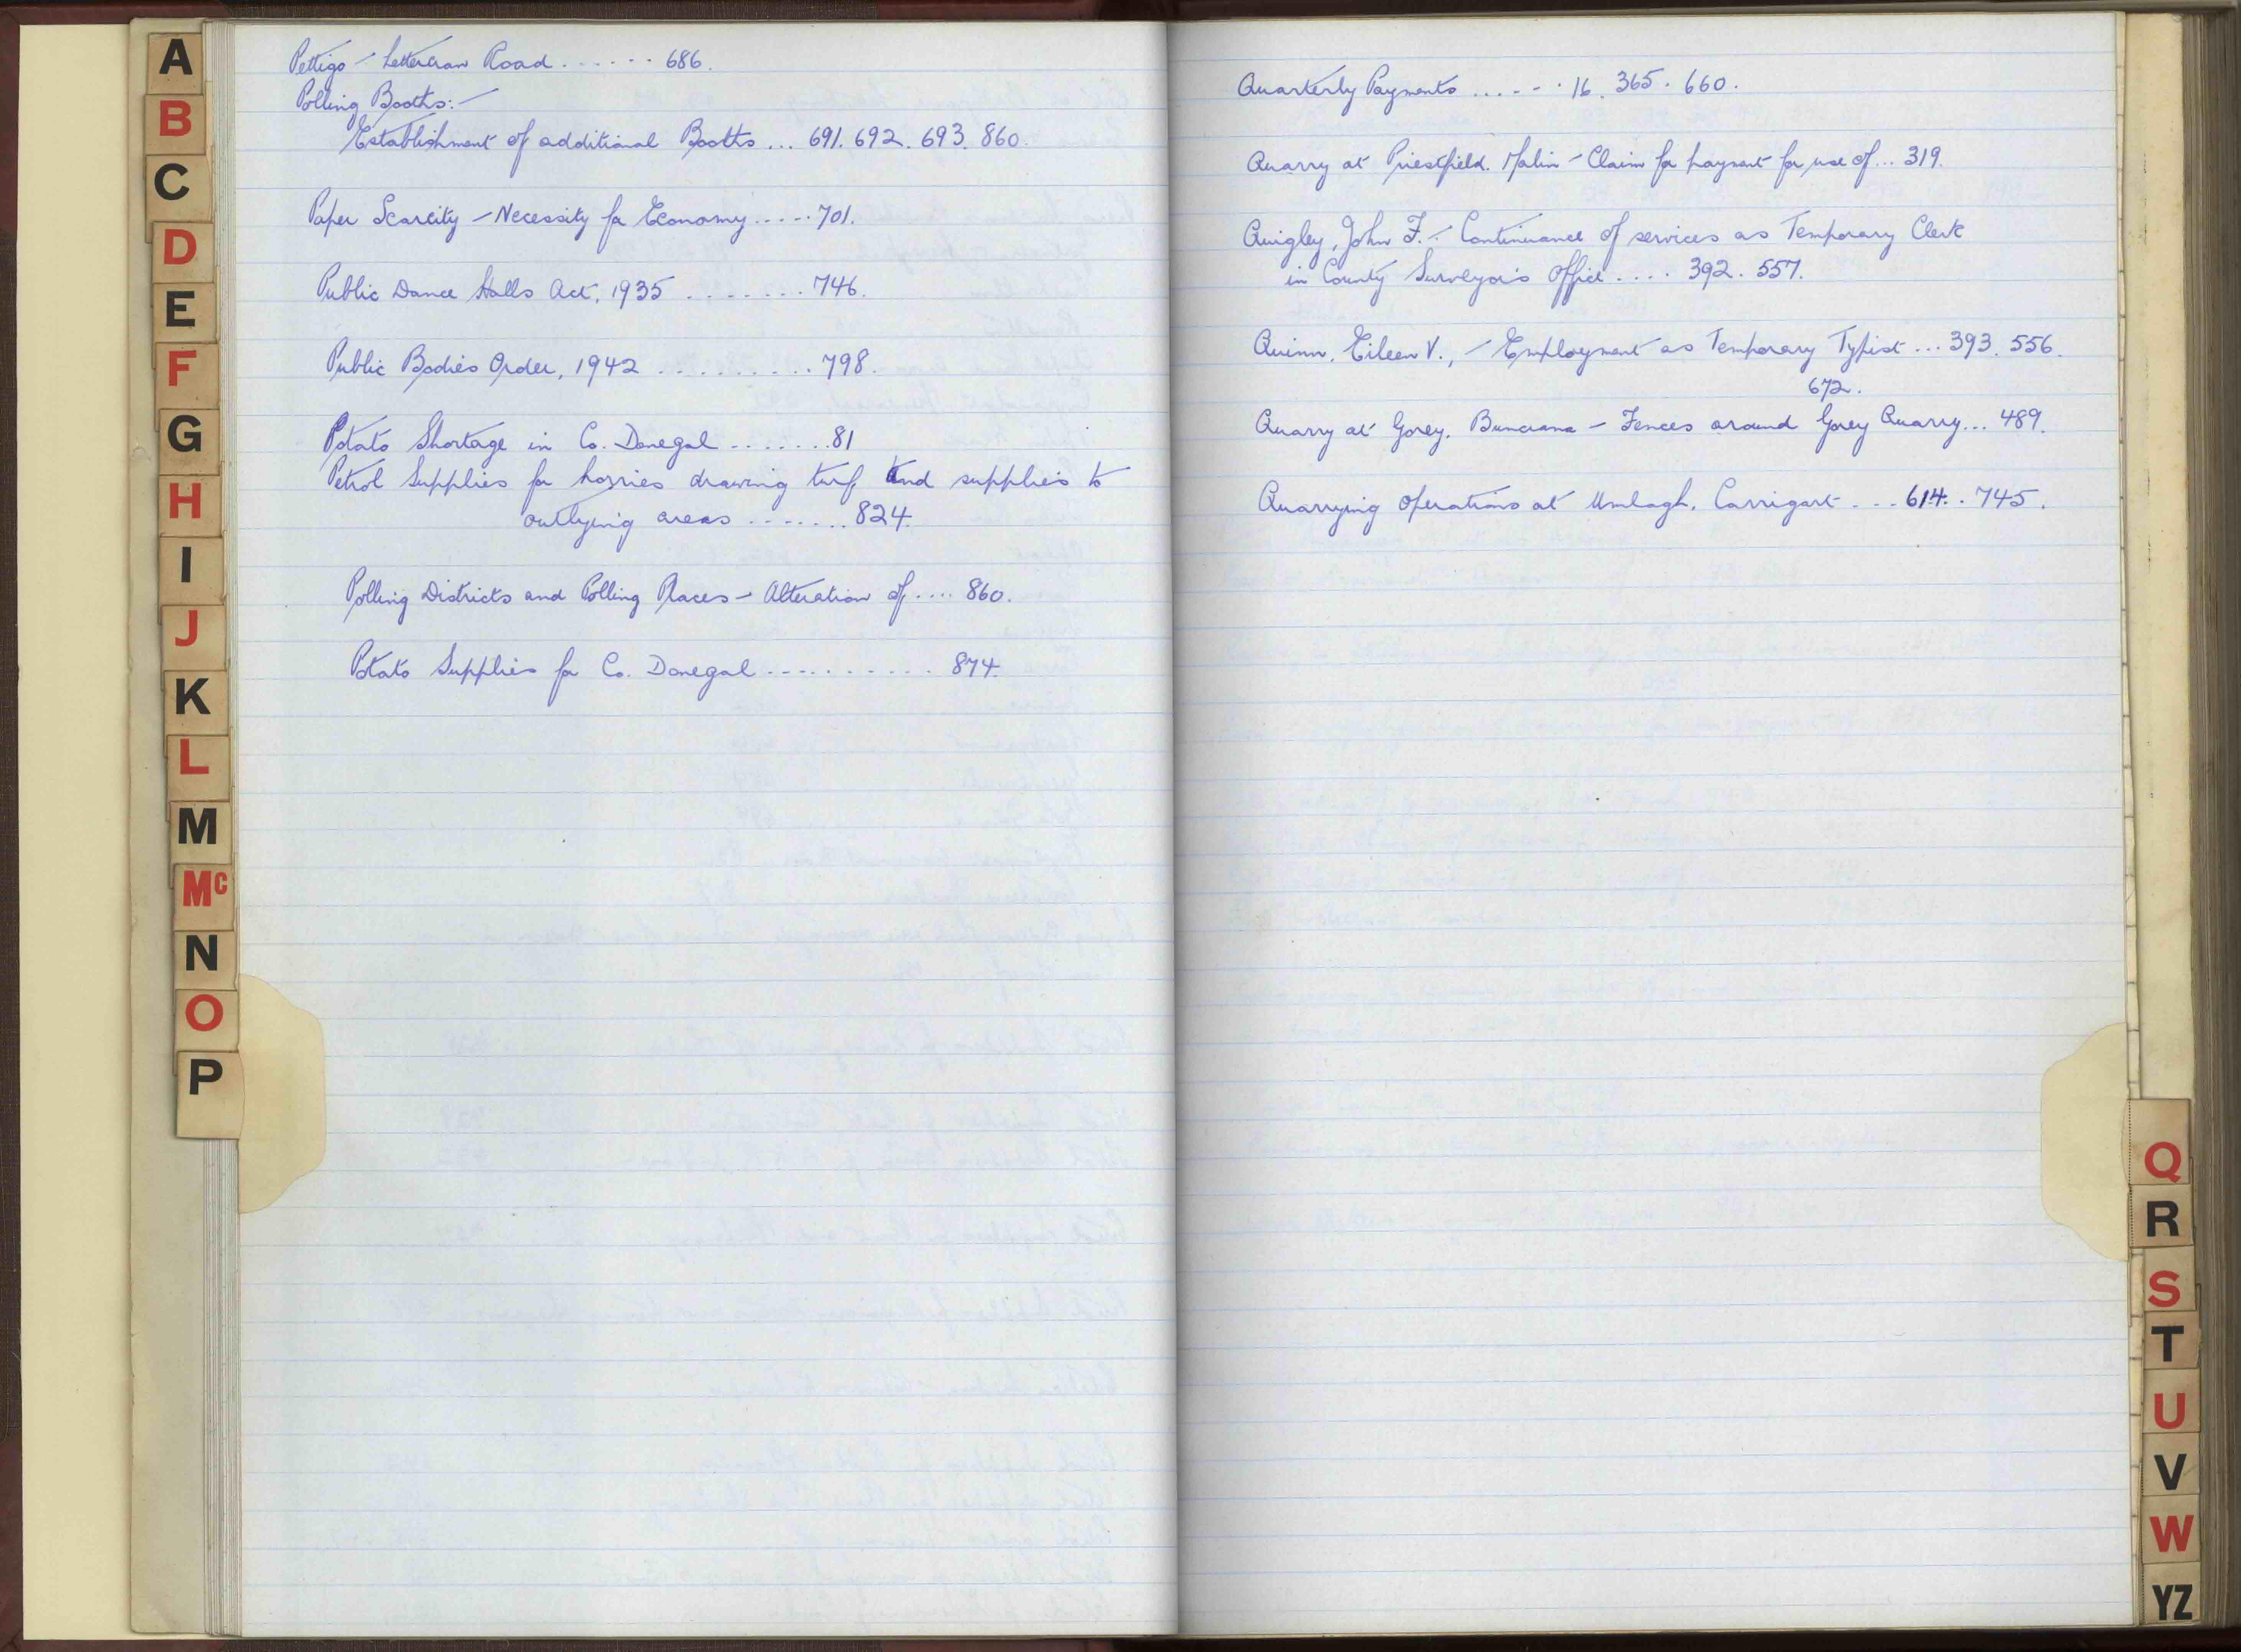 A
B
C
D
E
F
G
H
I
J
K
L
M
Mc
N
O
P
Pettigo - Lettercran Road ...... 686.
Polling Booths:-
Establishment of additional Booths ... 691. 692. 693. 860.
Paper Scarcity - Necessity for Economy ..... 701.
Public Dance Halls Act, 1935 ........ 746.
Public Bodies Order, 1942 ......... 798.
Potato Shortage in Co. Donegal ....... 81
Petrol Supplies for lorries drawing turf and supplies to
outlying areas ....... 824.
Polling Districts and Polling Places - Alteration of .... 860.
Potato Supplies for Co. Donegal .......... 874.
Quarterly Payments ...... 16. 365. 660.
Quarry at Priestfield. Malin - Claim for payment for use of ... 319.
Quigley, John F. - Continuance of services as Temporary Clerk
in County Surveyor's Office .... 392. 557.
Quinn, Eileen V., - Employment as Temporary Typist ... 393. 556.
672.
Quarry at Gorey, Buncrana - Fences around Gorey Quarry... 489.
Quarrying operations at Umlagh, Carrigart ... 614. 745.
Q
R
S
T
U
V
W
YZ